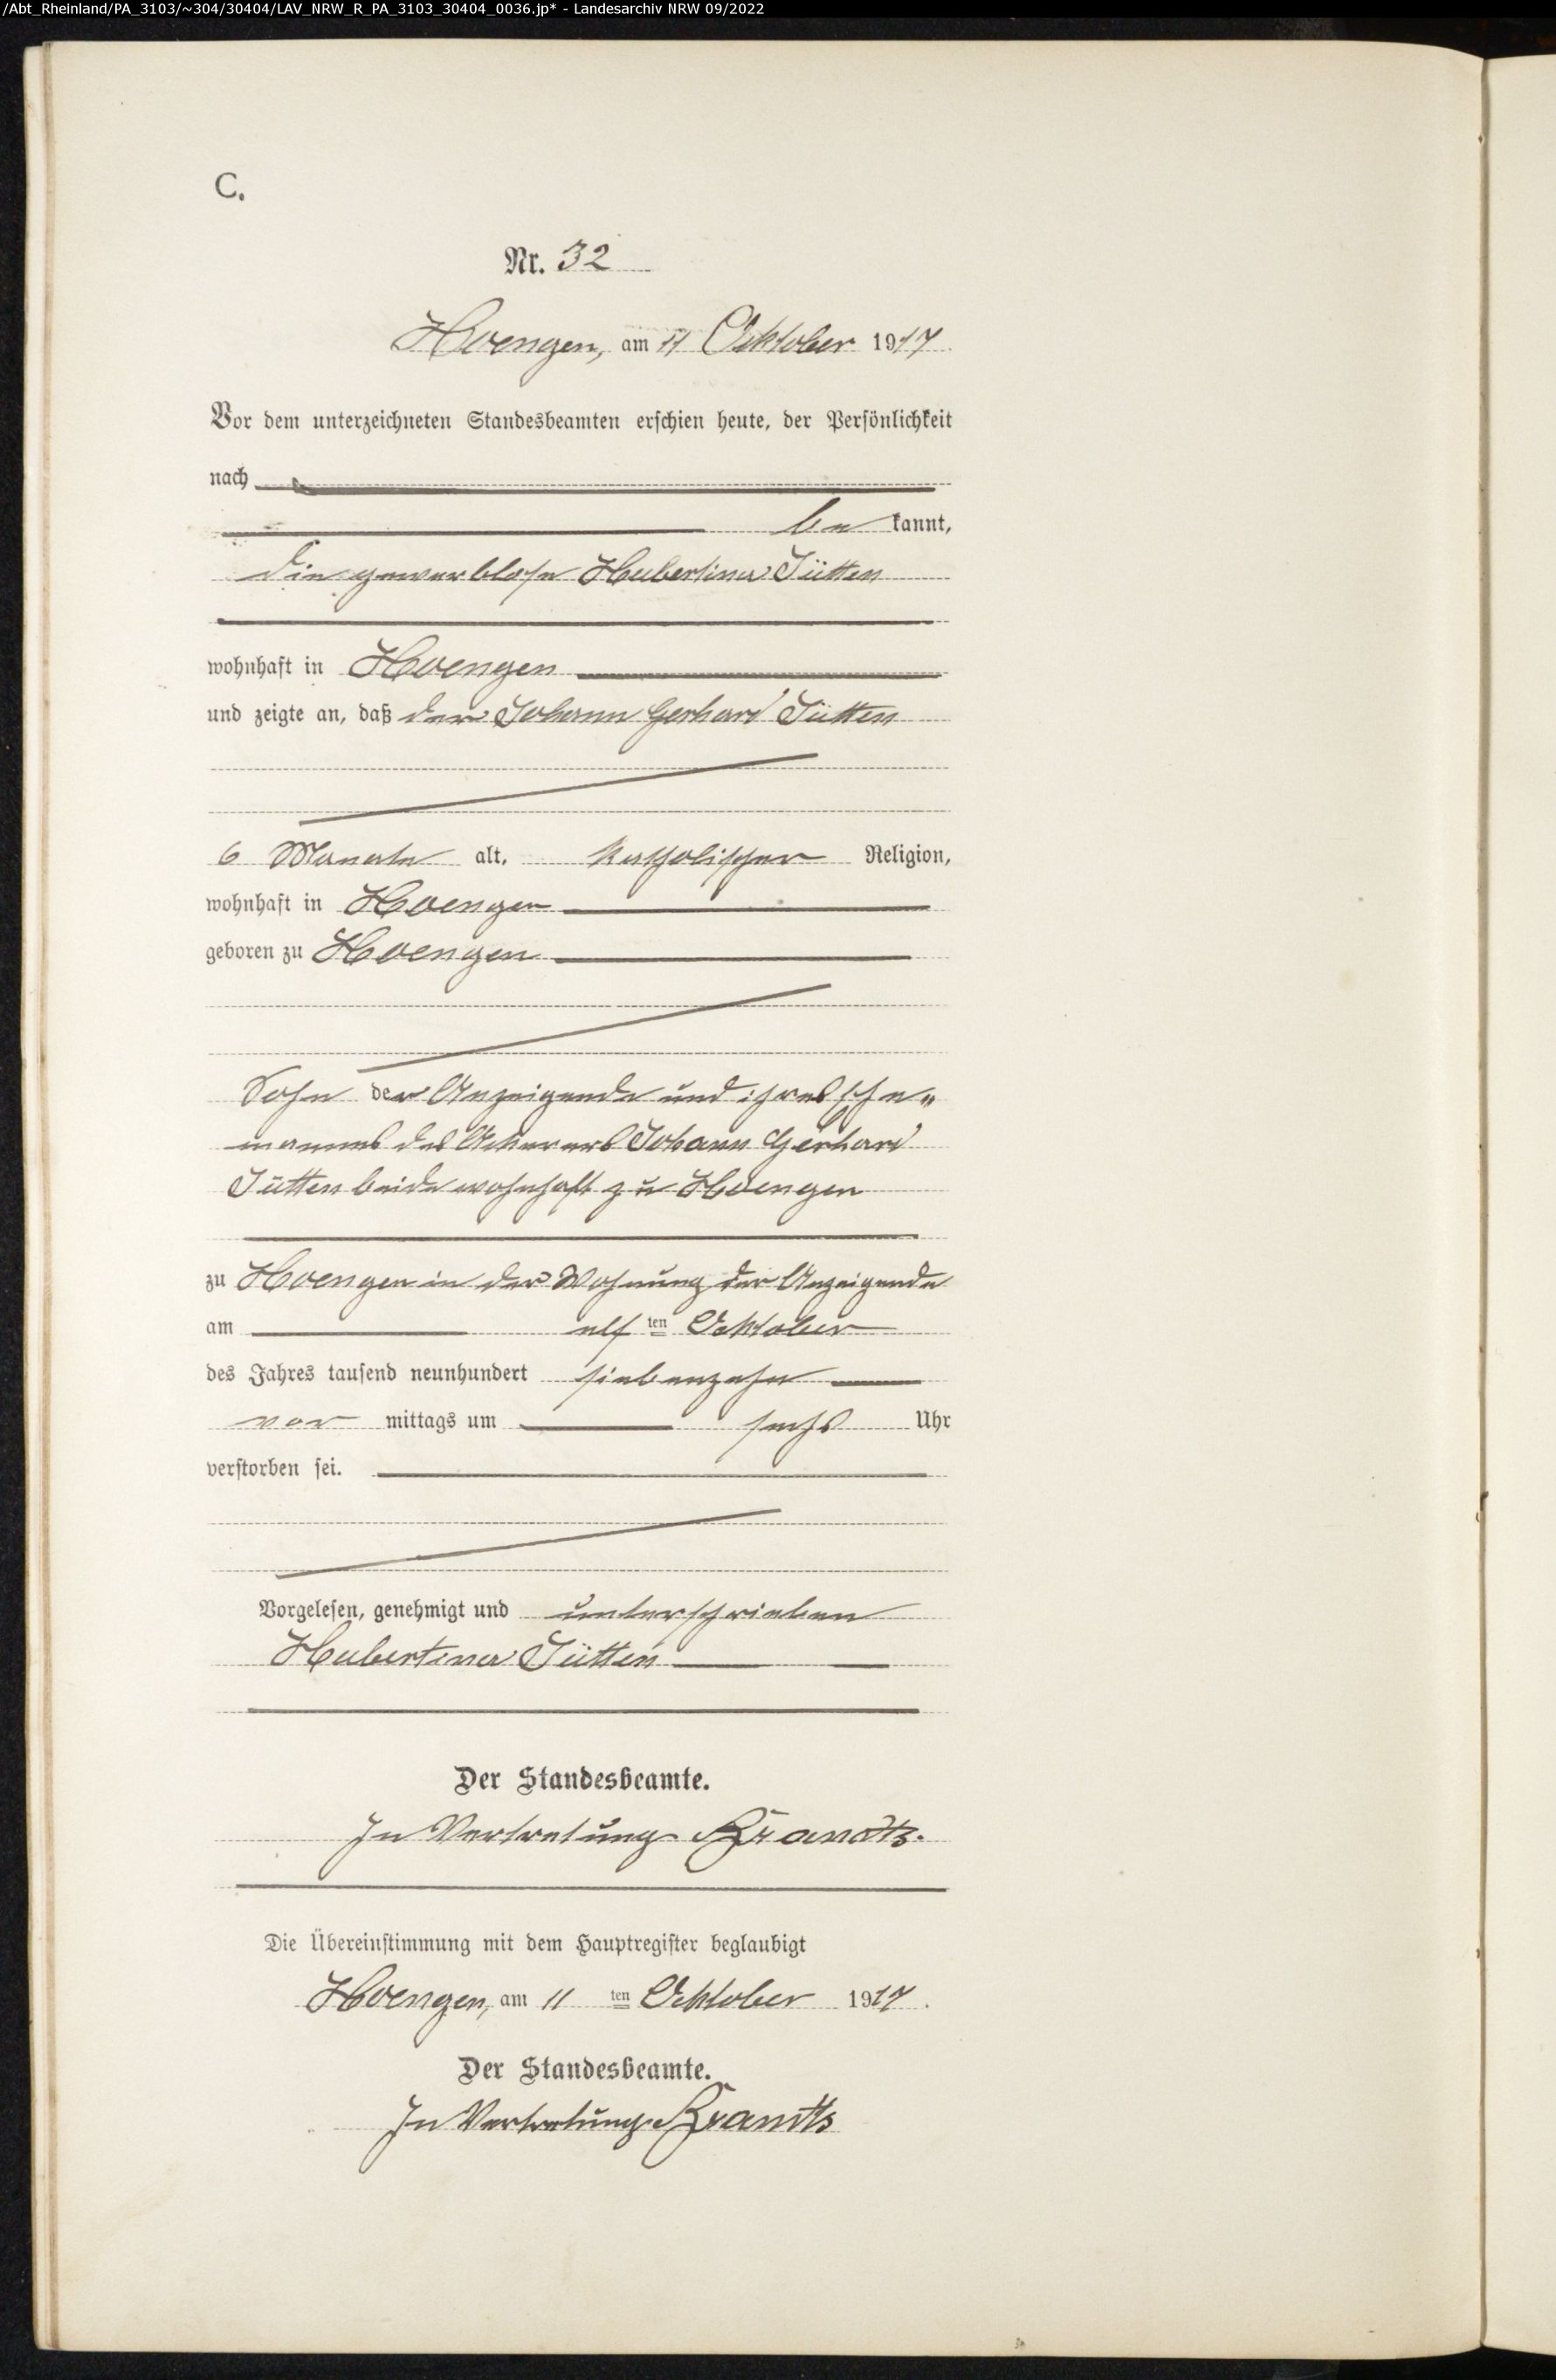 /Abt_Rheinland/PA_3103/~304/30404/LAV_NRW_R_PA_3103_30404_0036.jp* - Landesarchiv NRW 09/2022
C.
Nr. 32
Hoengen, am 11 Oktober 1917
Vor dem unterzeichneten Standesbeamten erschien heute, der Persönlichkeit
nach
be kannt,
die gewerblose Hubertina Jütten
wohnhaft in Hoengen
und zeigte an, daß der Johann Gerhard Jütten
6 Monate alt, katholischer Religion,
wohnhaft in Hoengen
geboren zu Hoengen
Sohn der Anzeigende und ihres Ehe„
mannes des Ackerers Johann Gerhard
Jütten beide wohnhaft zu Hoengen
zu Hoengen in der Wohnung der Anzeigende
am elf ten Oktober
des Jahres tausend neunhundert siebenzehn
vor mittags um sechs Uhr
verstorben sei.
Vorgelesen, genehmigt und unterschrieben
Hubertina Jütten
Der Standesbeamte.
In Vertretung
Die Übereinstimmung mit dem Hauptregister beglaubigt
Hoengen, am 11 ten Oktober 1917.
Der Standesbeamte.
In Vertretung